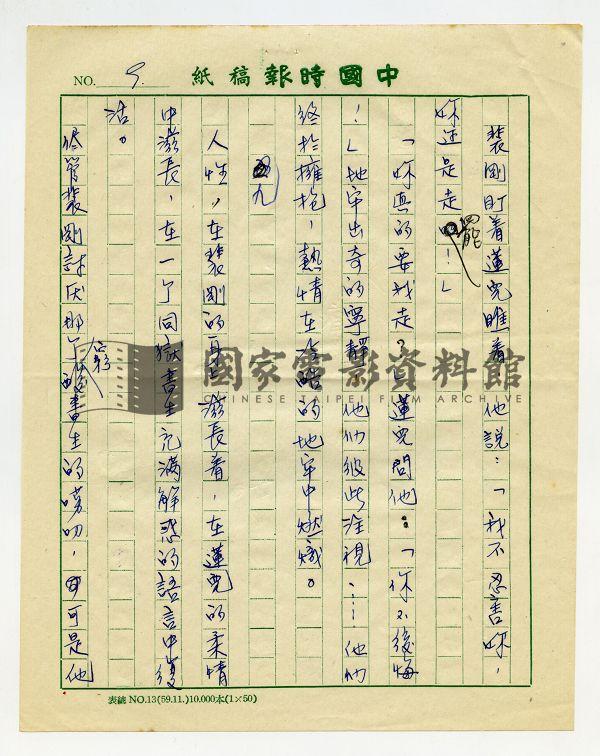 NO. 9.
中國時報稿紙
裴剛盯着蓮兒瞧着他說:「我不忍害妳,
妳还是走罷!」
「妳真的要我走?」蓮兒問他:「你不後悔
!」地牢出奇的寧靜,他们彼此注視……他们
終於擁抱,熱情在冷酷的地牢中燃熾。
九
人性,在裴剛的身上滋長着,在蓮兒的柔情
中滋長,在一个同獄書生充滿解惑的語言中復
活。
儘管裴剛討厌那个酸書生的嘮叨,可是他
國家電影資料館
CHINESE TAIPEI FILM ARCHIVE
表總 NO.13(59.11.)10.000本(1×50)